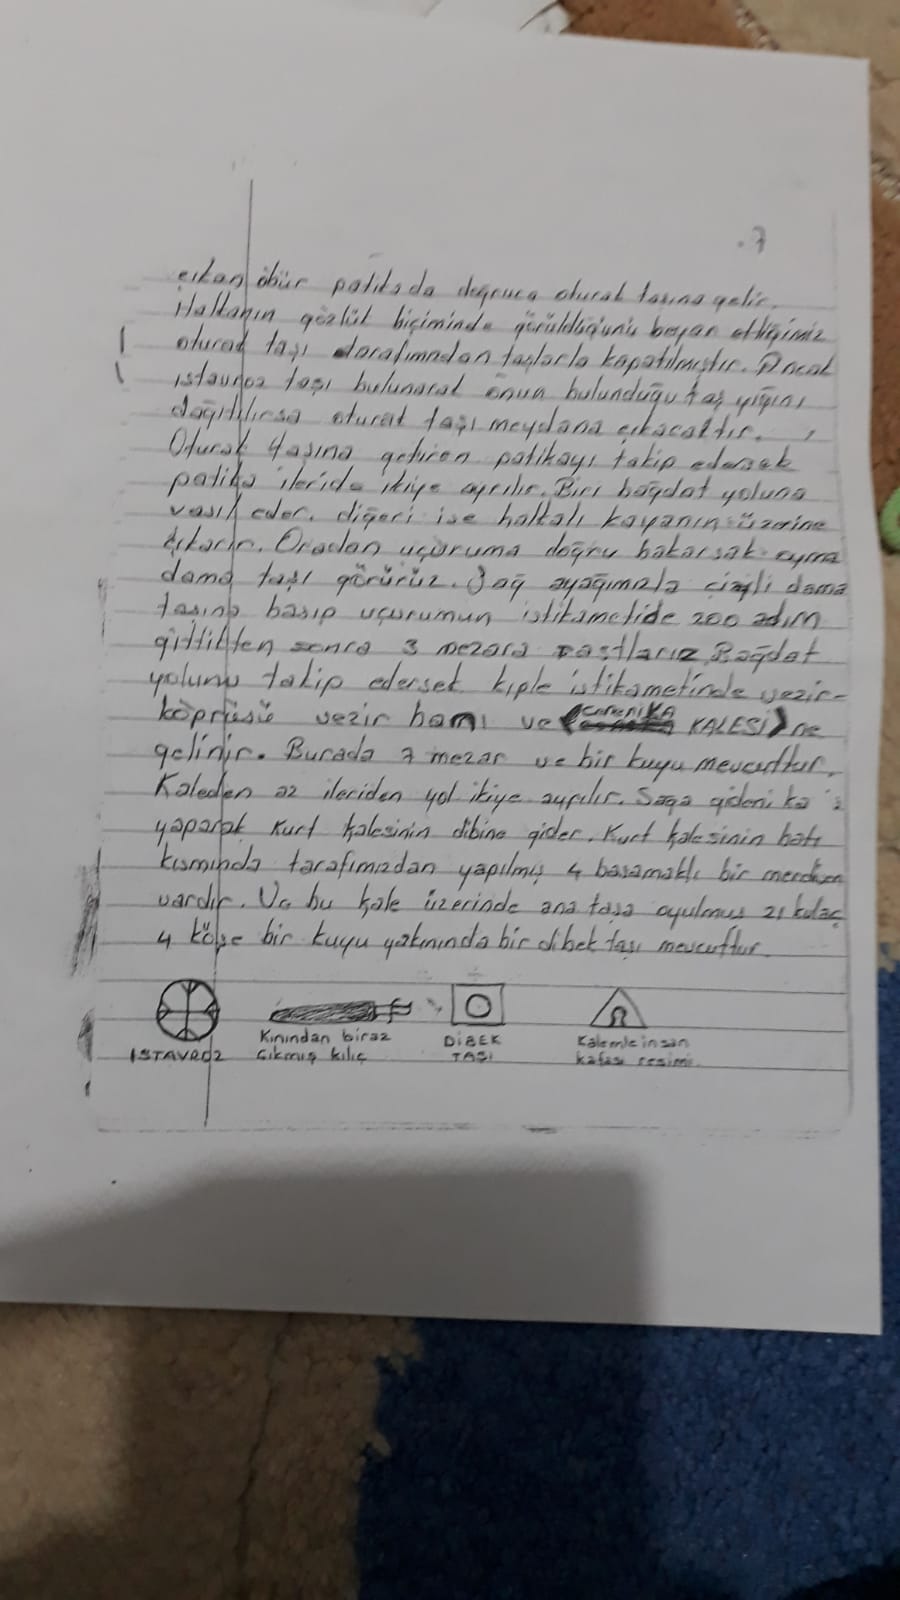 .7
çıkan öbür patikada doğruca oturak taşına gelir.
Halkanın gözlük biçiminde görüldüğünü beyan ettiğimiz
oturak taşı tarafımından taşlarla kapatılmıştır. Ancak
istavroz taşı bulunarak onun bulunduğu taş yığını
dağıtılırsa oturak taşı meydana çıkacaktır.
Oturak taşına getiren patikayı takip edersek
patika ileride ikiye ayrılır. Biri bağdat yoluna
vasıl eder. diğeri ise halkalı kayanın üzerine
çıkarır. Oradan uçuruma doğru bakarsak oyma
dama taşı görürüz. Sağ ayağımızla çizili dama
taşına basıp uçurumun istikametide 200 adım
gittikten sonra 3 mezara rastlarız. Bağdat
yolunu takip edersek kıple istikametinde vezir-
köprüsü vezir hamı ve (KALESİ) ne
gelinir. Burada 7 mezar ve bir kuyu mevcuttur.
Kaleden az ileriden yol ikiye ayrılır. Sağa gideni
yaparak Kurt kalesinin dibine gider. Kurt kalesinin batı
kısmında tarafımızdan yapılmış 4 basamaklı bir merdiven
vardır. Ve bu kale üzerinde ana taşa oyulmuş 21 kulaç
4 köşe bir kuyu yakınında bir dibek taşı mevcuttur.
İSTAVROZ
Kınından biraz
çıkmış kılıç
DİBEK
TAŞI
Kalemle insan
kafası resimi.